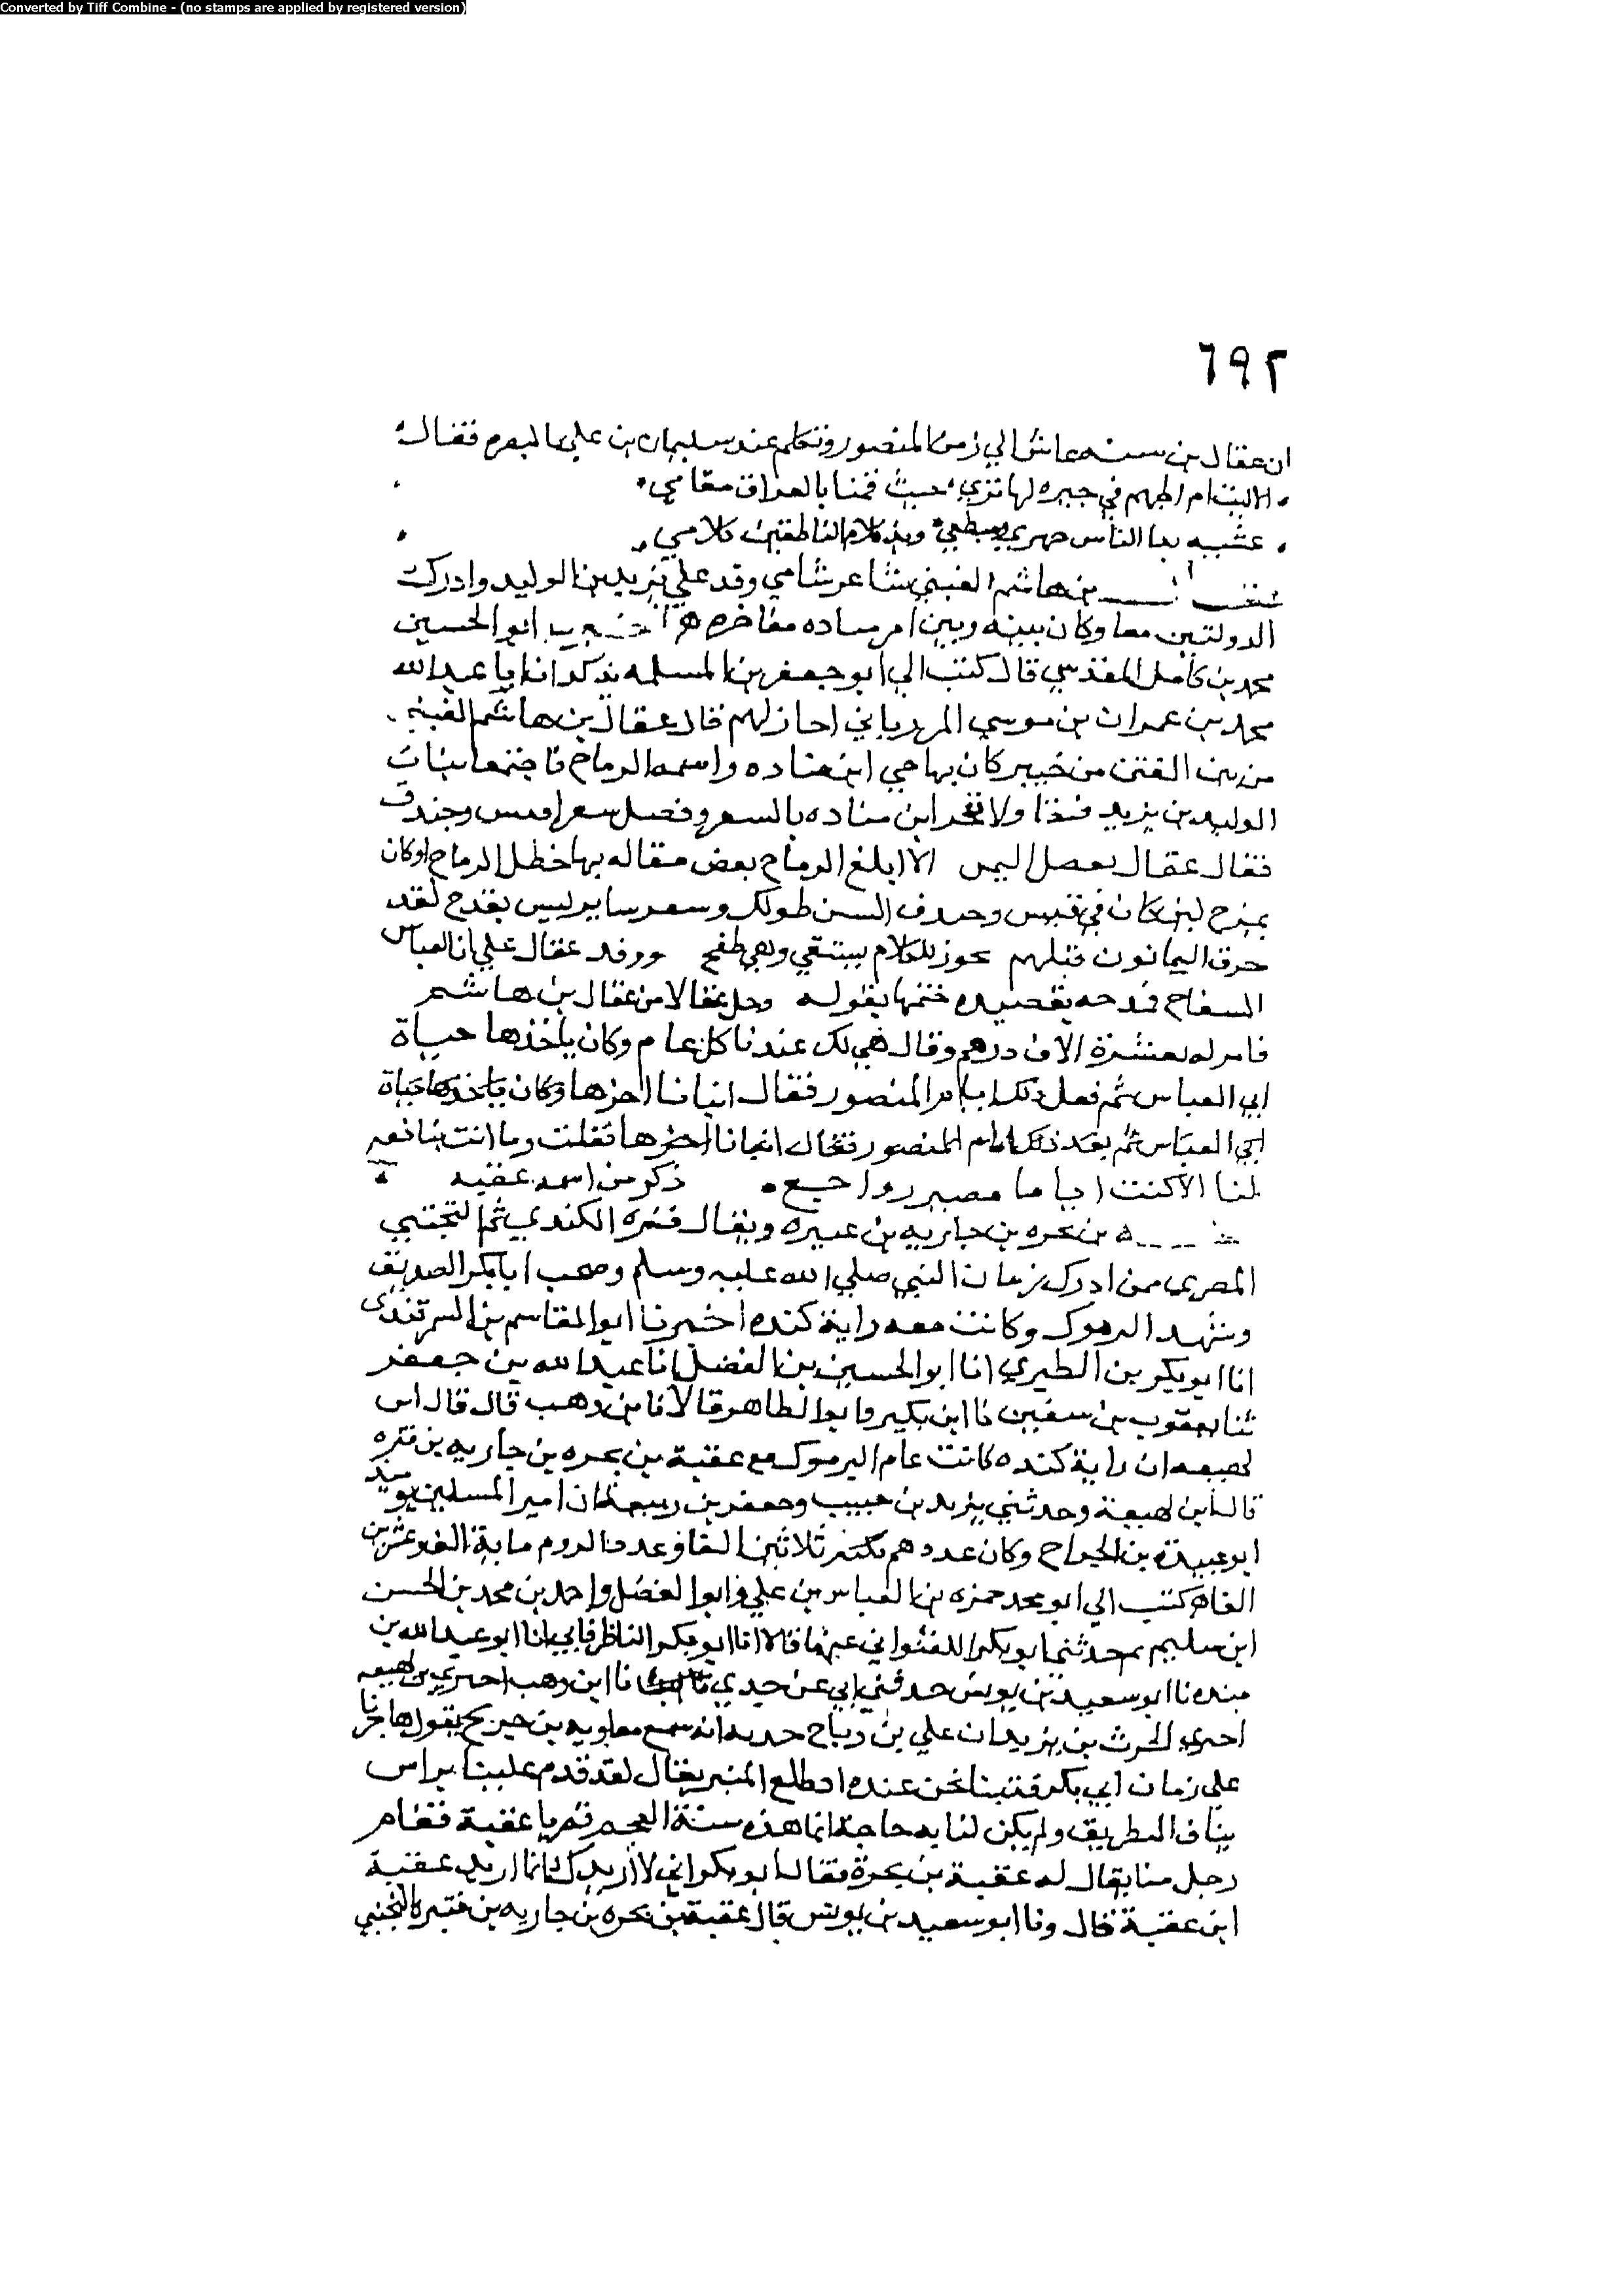 Converted by Tiff Combine - (no stamps are applied by registered version)
٦٩٢
ان عقال بن سنه عاش الي زمن المنصور وتكلم عند سليمان بن علي بالبصره فقال
الا ليت ام الجهم في جيره لها تري حيث قمنا بالعراق مقامي
عشيه بدا الناس جهري ومنطقي وبذ كلام الناطقين كلامي
عقال بن هاشم القيني شاعر شامي وفد علي يزيد بن الوليد وادرك
الدولتين معا وكان بينه وبين ابن ميادة مفاخره ابو الحسين
محمد بن كامل المقدسي قال كتب الي ابو جعفر بن المسلمه يذكر ان ابا عبد الله
محمد بن عمران بن موسي المرزباني اجاز لهم قال عقال بن هاشم القيني
من بني القين من كان يهاجي ابن مياده واسمه الرماح فاجتمعا بباب
الوليد بن يزيد ابن مياده بالشعر وفضل شعرا قيس وخندف
فقال عقال يفضل اليمن الا ابلغ الرماح بعض مقاله بها خطل الرماح او كان
يمزح لين كان في قيس وخندف السن طوال وشعر ساير ليس يقدح لقد
خرق اليمانون قبلهم بحور الكلام يستقي وهي طفح ووفد عقال علي ابي العباس
السفاح فمدحه بقصيده ختمها بقوله وحل عقالا من عقال بن هاشم
فامر له بعشرة الاف درهم وقال هي لك عندنا كل عام وكان ياخذها حياة
ابي العباس ثم فعل ذلك بامر المنصور فقال اخرها وكان ياخذها حياة
ابي العباس ثم بعد ذلك ايام المنصور فقال اخرها فقلت وما انت بنافعه
لنا الا كنت اياما ذكر من اسمه عقبه
بن بحره بن جاريه بن عبيره ويقال قتيره الكندي ثم التجيبي
المصري ممن ادرك زمان النبي صلي الله عليه وسلم وصحب ابا بكر الصديق
وشهد اليرموك وكانت معه راية كنده اخبرنا ابو القاسم بن السمرقندي
انا ابو بكر بن الطبري انا ابو الحسين بن الفضل انا عبد الله بن جعفر
ثنا يعقوب بن سفين نا ابن بكير وابو الطاهر قالا نا ابن وهب قال قال ابن
لهيعه ان راية كنده كانت عام اليرموك مع عقبة بن بحره بن جاريه بن قتره
قال ابن لهيعة وحدثني يزيد بن حبيب وجعفر بن ربيعه ان امير المسلمين يوميد
ابو عبيدة بن الجراح وكان عددهم ثلاثين الفا وعدد الروم ماية الف وعشرين
الفا كتب الي ابو محمد حمزه بن العباس بن علي وابو الفضل واحمد بن محمد بن الحسن
ابن سليم ثم حدثنا ابو بكر اللفتواني عنهما قالا انا ابو بكر الباطرقاني انا ابو عبد الله بن
منده نا ابو سعيد بن يونس حدثني ابي عن جدي نا ابن وهب اخبرني بن لهيعه
اخبرني الحرث بن يزيد ان علي بن رباح حدثه انه سمع معاويه بن حديج يقول هاجرنا
على زمان ابي بكر فبينا نحن عنده اذ طلع المنبر فقال لقد قدم علينا براس
يناق البطريق ولم يكن لنا به حاجة انما هذه سنة العجم قم يا عقبة فقام
رجل منا يقال له عقبة بن بحرة فقال ابو بكر اني لا اريدك انما اريد عقبة
ابن عقبة قال ونا ابو سعيد بن يونس قال عقبة بن بحره بن جاريه بن قتيره التجيبي